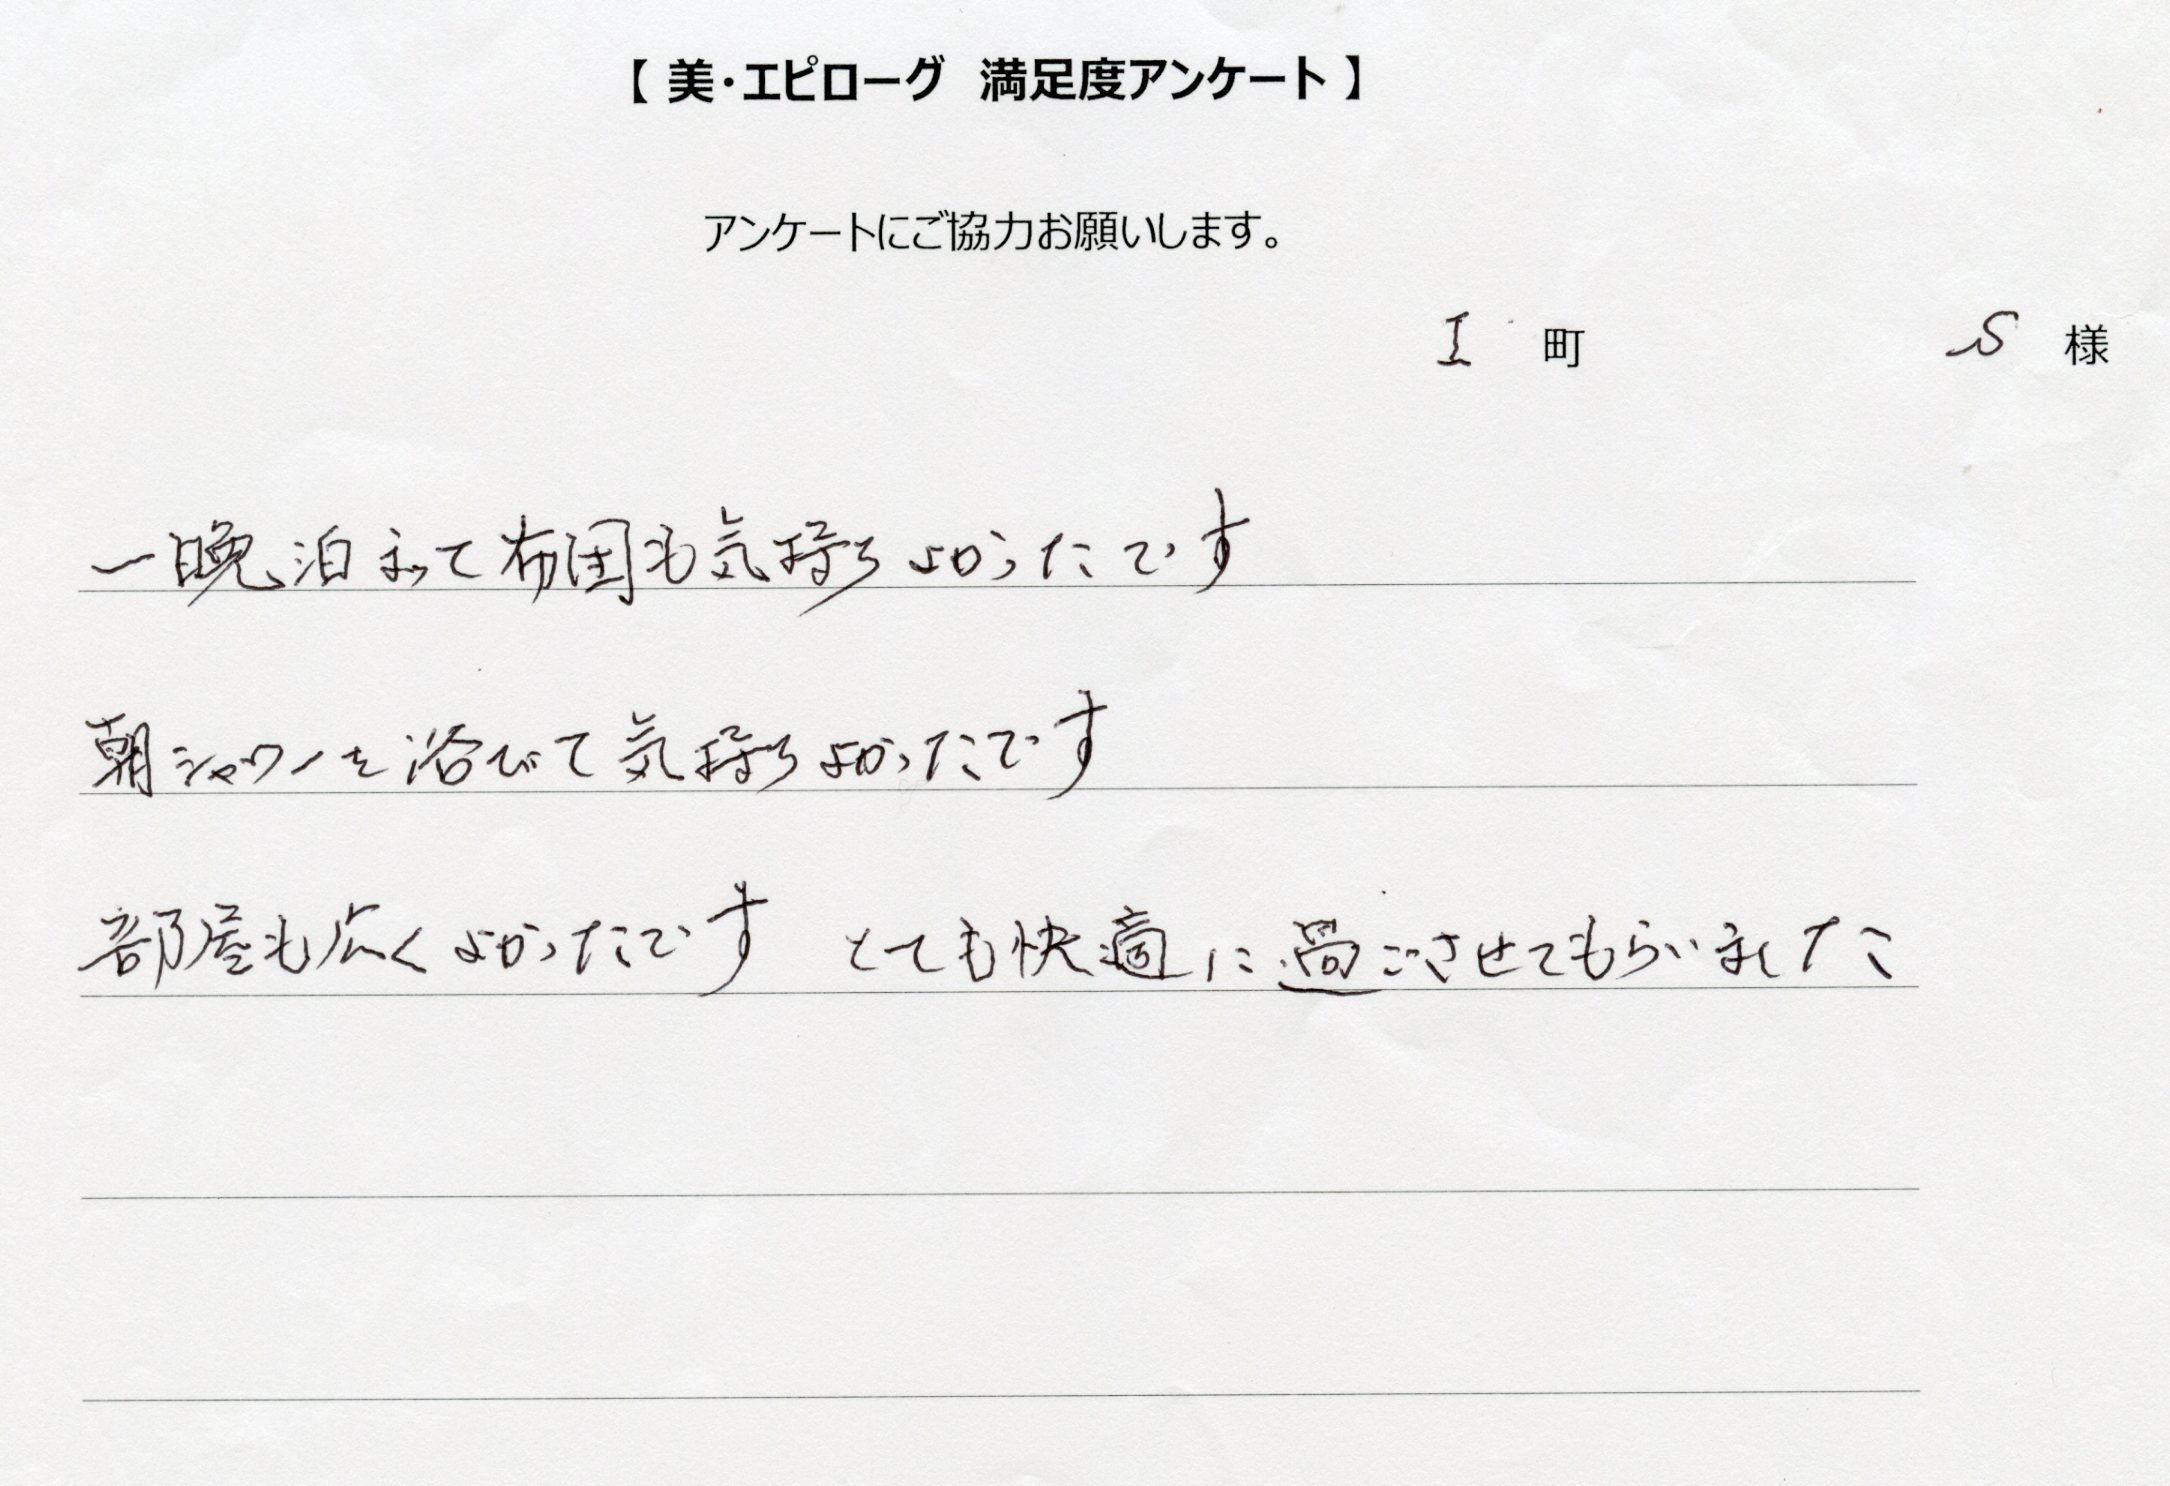 【 美・エピローグ 満足度アンケート 】
アンケートにご協力お願いします。
I 町 S 様
一晩泊まって布団も気持ちよかったです
朝シャワーを浴びて気持ちよかったです
部屋も広くよかったです とても快適に過ごさせてもらいました